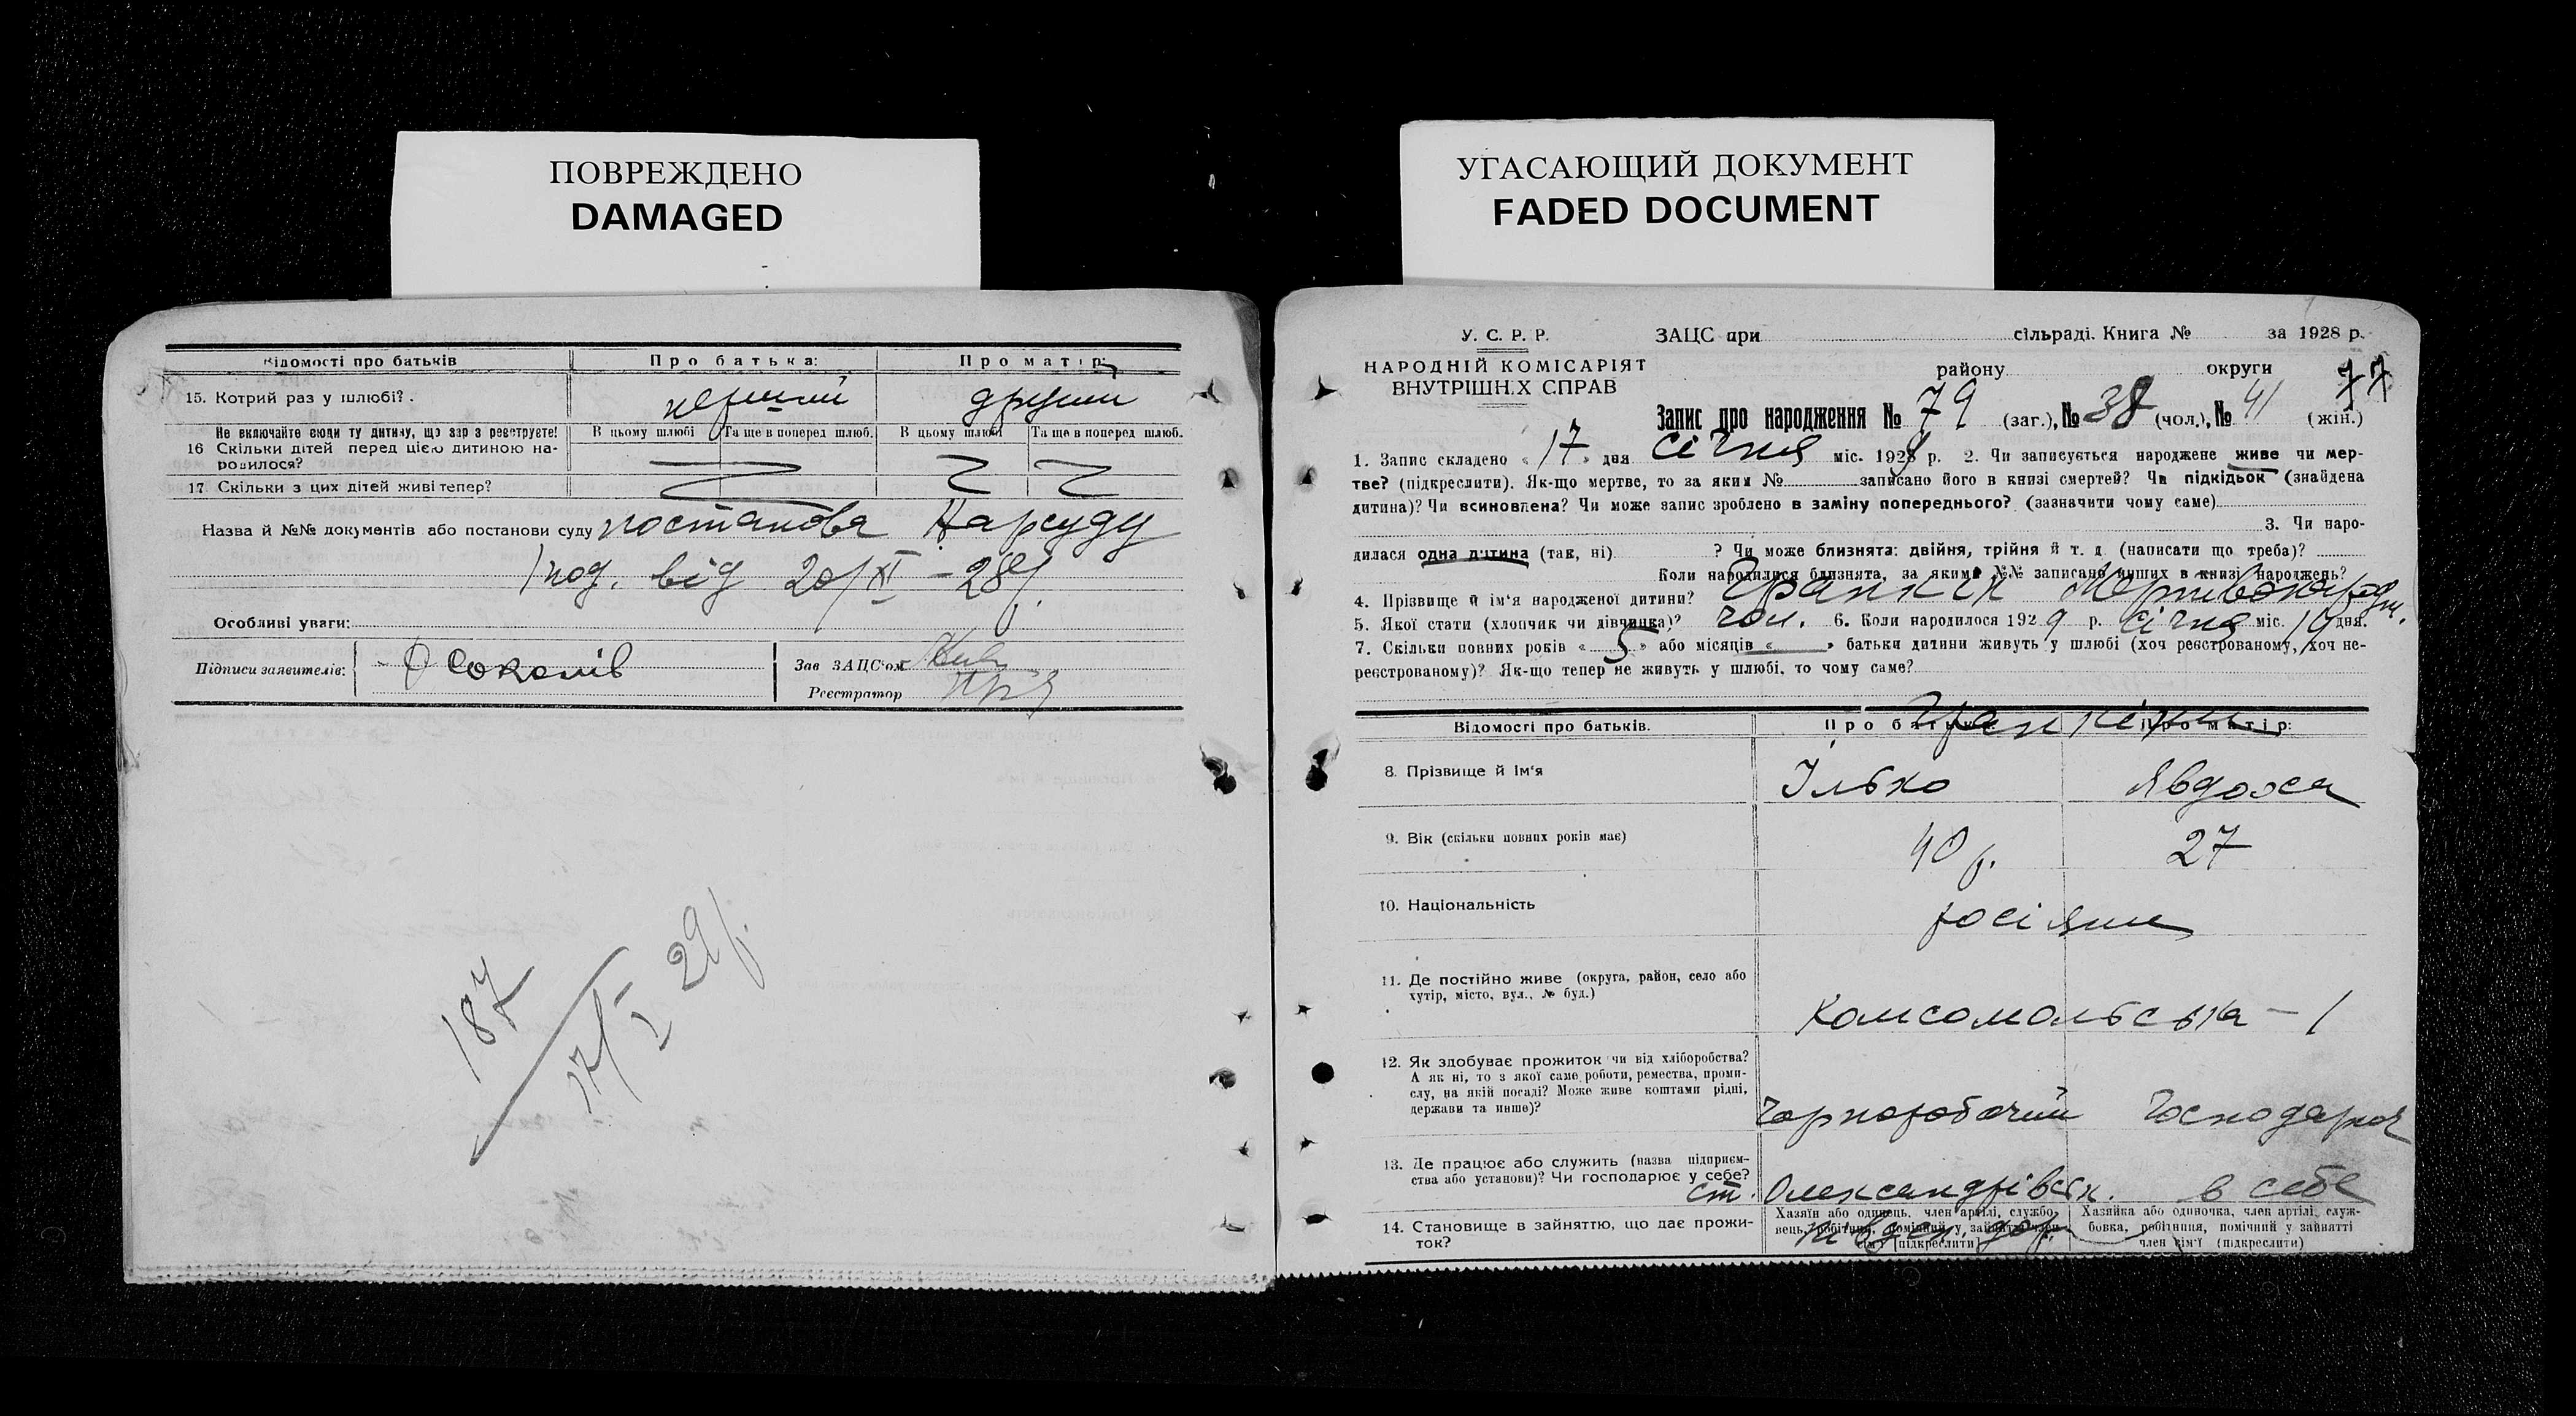 ПОВРЕЖДЕНО
DAMAGED
УГАСАЮЩИЙ ДОКУМЕНТ
FADED DOCUMENT
Відомості про батьків
Про батька:
Про матір:
15. Котрий раз у шлюбі?
перший
други
Не включайте сюди ту дитину, що зараз реєструєте!
В цьому шлюбі
Та ще в поперед шлюб.
В цьому шлюбі
Та ще в поперед шлюб.
16 Скільки дітей перед цією дитиною на-
родилося?
17 Скільки з цих дітей живі тепер?
Назва й №№ документів або постанови суду постанова Нарсуду
від 20/XI – 28 р.
Особливі уваги:
Підписи заявителів:
Соколів
Зав ЗАЦС'ом
Реєстратор
187
17/I 29 р.
У. С. Р. Р.
НАРОДНІЙ КОМІСАРІЯТ
ВНУТРІШНІХ СПРАВ
ЗАЦС при сільраді. Книга № за 1928 р.
району округи
77
Запис про народження № 79 (заг.), № 38 (чол.), № 41 (жін.)
1. Запис складено « 17 » дня січня міс. 1929 р. 2. Чи записується народжене живе чи мер-
тве? (підкреслити). Як-що мертве, то за яким № записано його в книзі смертей? Чи підкідьок (знайдена
дитина)? Чи всиновлена? Чи може запис зроблено в заміну попереднього? (зазначити чому саме)
3. Чи наро-
дилася одна дитина (так, ні) ? Чи може близнята: двійня, трійня й т. д. (написати що треба)?
Коли народилися близнята, за якими №№ записано инших в книзі народжень?
4. Прізвище й ім'я народженої дитини? Гранкін Мертвонародж.
5. Якої стати (хлопчик чи дівчинка)? чол. 6. Коли народилося 1929 р. січня міс. 10 дня.
7. Скільки повних років « 5 » або місяців « » батьки дитини живуть у шлюбі (хоч реєстрованому, хоч не-
реєстрованому)? Як-що тепер не живуть у шлюбі, то чому саме?
Відомості про батьків.
Про батька:
Про матір:
Гранкіни
8. Прізвище й ім'я
Ілько
Явдоха
9. Вік (скільки повних років має)
40 р.
27
10. Національність
росіяни
11. Де постійно живе (округа, район, село або
хутір, місто, вул., № буд.)
Комсомольська – 1
12. Як здобуває прожиток чи від хліборобства?
А як ні, то з якої саме роботи, ремества, проми-
слу, на якій посаді? Може живе коштами рідні,
держави та инше)?
Чорноробочий
Господарює
13. Де працює або служить (назва підприєм-
ства або установи)? Чи господарює у себе?
ст. Олександрівськ.
в себе
півден. дор.
14. Становище в зайняттю, що дає прожи-
ток?
Хазяїн або одинець, член артілі, службо-
вець, робітник, помічний у зайнятті член
сім'ї [підкреслити]
Хазяйка або одиночка, член артілі, служ-
бовка, робітниця, помічний у зайнятті
член сім'ї (підкреслити)